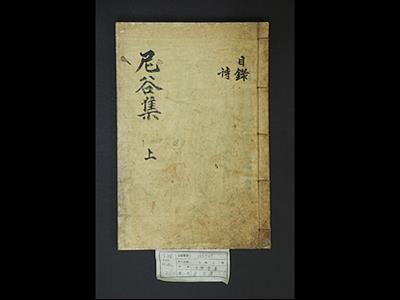 目錄
詩
尼谷集
上